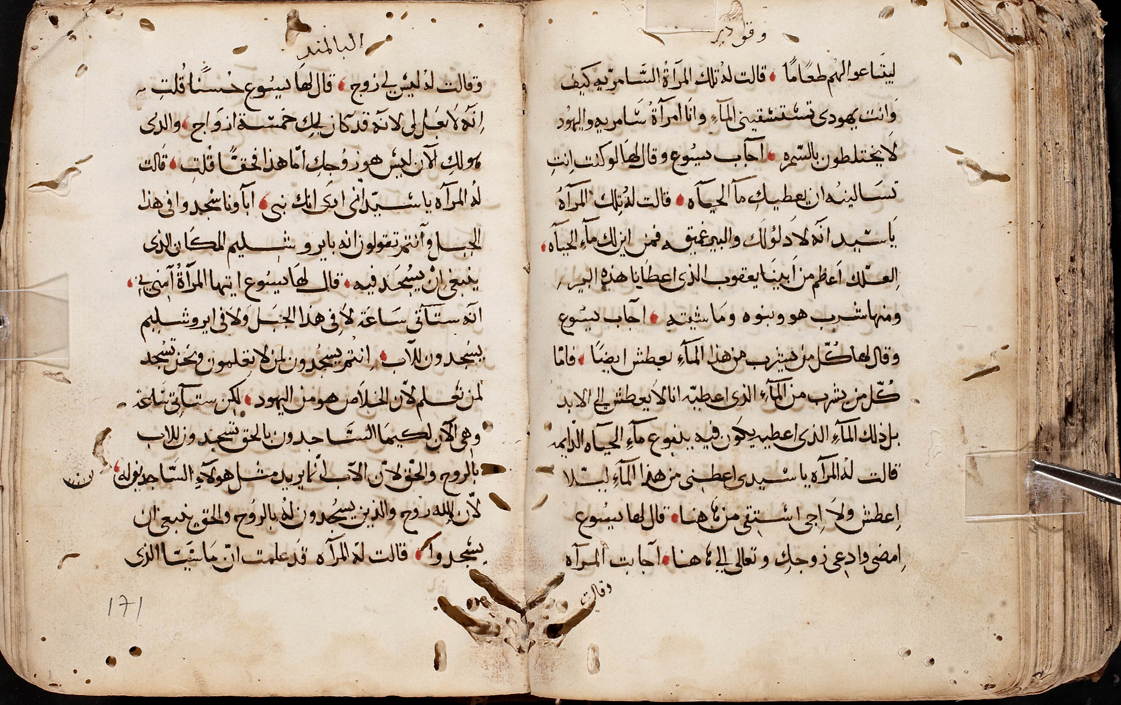 وقف دير
ليبتاعوا لهم طعامًا قالت له تلك المرأة السامرية كيف
وانت يهودي تستسقيني الماء وانا امرأة سامريه واليهود
لا يختلطون بالسمره اجاب يسوع وقال لها لو كنت انت
تسالينه ان يعطيك ما الحياه قالت له تلك المرأة
يا سيد انه لا دلو لك والبير عميقه فمن اين لك ماء الحياه
العلك اعظم من ابينا يعقوب الذي اعطانا هذه البير
ومنها شرب هو وبنوه وماشيته اجاب يسوع
وقال لها كل من يشرب من هذا الماء يعطش ايضًا فاما
كل من يشرب من الماء الذي اعطيه انا لا يعطش الى الابد
بل ذلك الماء الذي اعطيه يكون فيه ينبوع ماء الحياه الدايمه
قالت له المرأه يا سيدي اعطني من هذا الماء ليلا
اعطش ولا اجي استقي من هاهنا قال لها يسوع
امضي وادعي زوجك وتعالي الى هاهنا اجابت المرأه
وقالت
البالمند
وقالت له ليس لي زوج قال لها يسوع حسنًا قلت
انه لا بعل لي لانه قد كان لك خمسة ازواج والذي
هو لك الآن ليس هو زوجك اما هذا فحقًا قلت قالت
له المرأه يا سيد اني ارى انك نبي آباونا سجدوا في هذا
الجبل وأنتم تقولون انه بايروشليم المكان الذي
ينبغي ان يسجد فيه قال لها يسوع ايتها المرأة آمني بي
انه ستأتي ساعة لا في هذا الجبل ولا في ايروشليم
يسجدون للآب انتم تسجدون لمن لا تعلمون ونحن نسجد
لمن نعلم لان الخلاص هو من اليهود لكن ستأتي ساعة
وهي الآن لكيما الساجدون بالحق يسجدون للاب
بالروح والحق لان الآب انما يريد مثل هولاء الساجدين له
لان الله روح والذين يسجدون له بالروح والحق ينبغي ان
يسجدوا قالت له المرأه قد علمت ان ماسيّا الذي
171